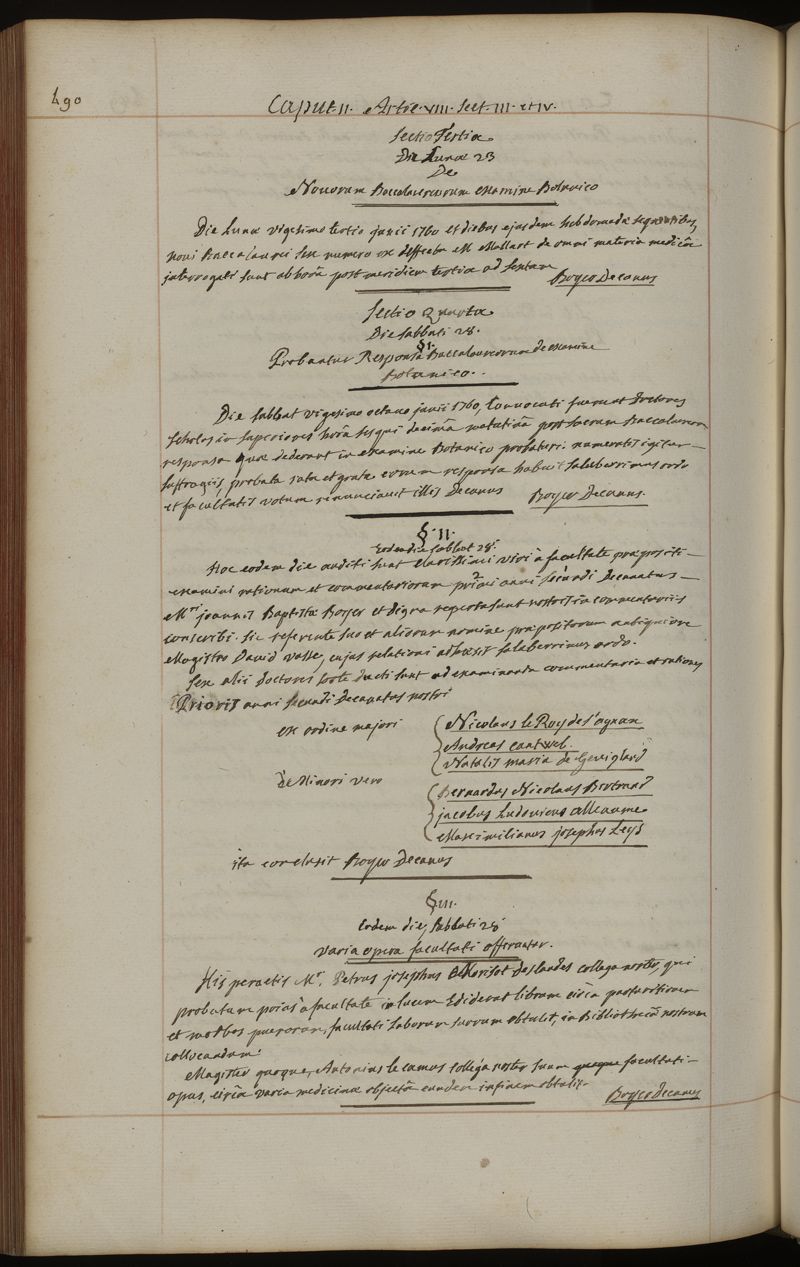 490
Caput. II. Artic. VIII. Sect. III. et IV.
Sectio Tertia
Die Lunæ 23
De
Novorum Baccalaureorum examine Botanico
Die Lunæ vigesimo tertio junii 1760 et diebus ejusdem hebdomadæ sequentibus,
novi Baccalaurei sex numero de omni materia medicâ
interrogati sunt ab horâ post meridiem tertia ad sextam
Boyer Decanus
Sectio Quarta
Die Sabbati 28.
§ I.
Probantur Responsa Baccalaureorum de examine
Botanico.
Die Sabbat vigesimo octavo junii 1760, Convocati fuerunt Doctores
Scholas in superiores horâ sesqui decimâ matutinâ post sacrum Baccalaureorum
responsa quæ dederant in examine Botanico probaturi. numeratis igitur
suffragiis, probata rata et grata eorum responsa habuit saluberrimus ordo
et facultatis votum renunciavit illis Decanus
Boyer Decanus.
§ II.
Eodem die Sabbat 28.
Hoc eodem die auditi sunt clarissimi viri à facultate præpositi
examini rationum et commentariorum primi anni secundi Decanatus
Mri joannis Baptistæ Boyer et digna reperta sunt nostris in commentariis
conscribi. sic referente suo et aliorum nomine præpositorum antiquiore
Magistro David Vasse, cujus relationi adhæsit saluberrimus ordo.
Sex alii Doctores sorte ducti sunt ad examinanda commentaria et rationes
Prioris anni secundi Decanatus nostri
ex ordine majori
Nicolaus le Roy de St agnan
Andreas Cantwel.
Natalis maria de Gevigland
de Minori vero
Bernardus Nicolaus Bertrand
jacobus Ludovicus Alleaume
Maximilianus josephus Leys
ita conclusit Boyer Decanus
§ III.
Eodem die Sabbati 28
varia opera facultati offeruntur.
His peractis Mr. Petrus josephus Morisot Deslandes collega noster, qui
probatum à facultate in lucem Ediderat librum circa parturitionem
et morbos puerorum, facultati laborum suorum obtulit, in Bibliothecâ nostram
collocandum.
Magister quoque, Antonius le camus collega noster suum quoque facultati
opus, circa varia medicinæ objecta eundem in finem obtulit.
Boyer Decanus